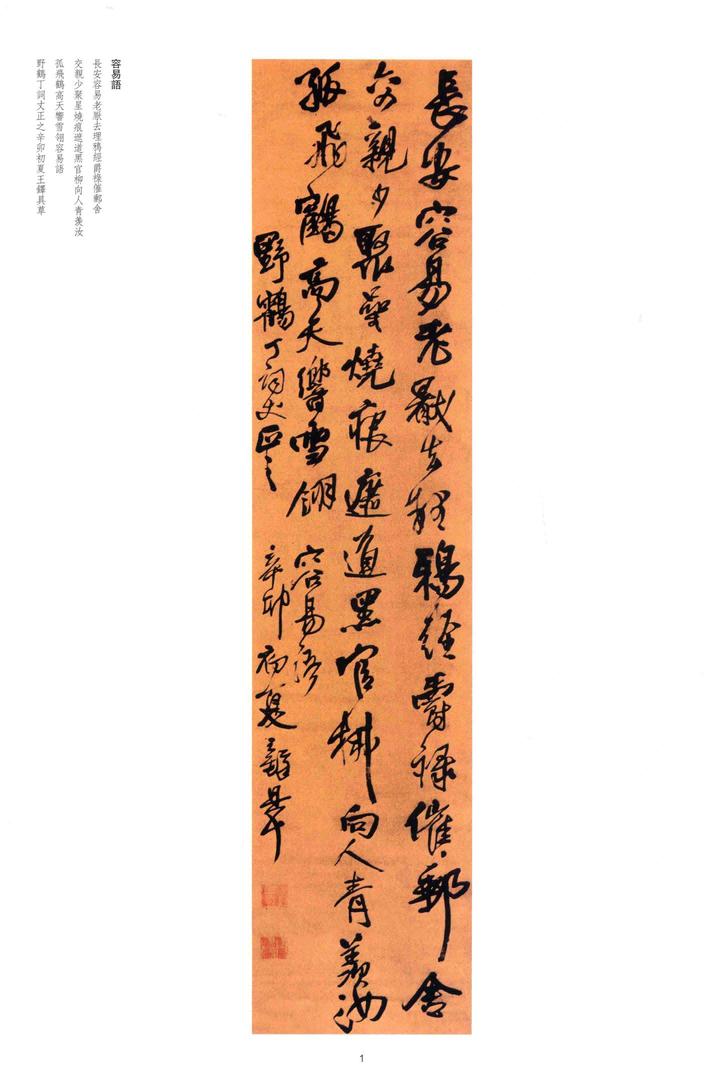 長安容易老厭去理鴉經爵祿催郵舍
交親少聚星燒痕遮道黑官柳向人青羨汝
孤飛鶴高天響雪翎容易語
野鶴丁詞丈正之辛卯初夏王鐸具草
容易語
長安容易老厭去理鴉經爵祿催郵舍
交親少聚星燒痕遮道黑官柳向人青羨汝
孤飛鶴高天響雪翎容易語
野鶴丁詞丈正之辛卯初夏王鐸具草
1